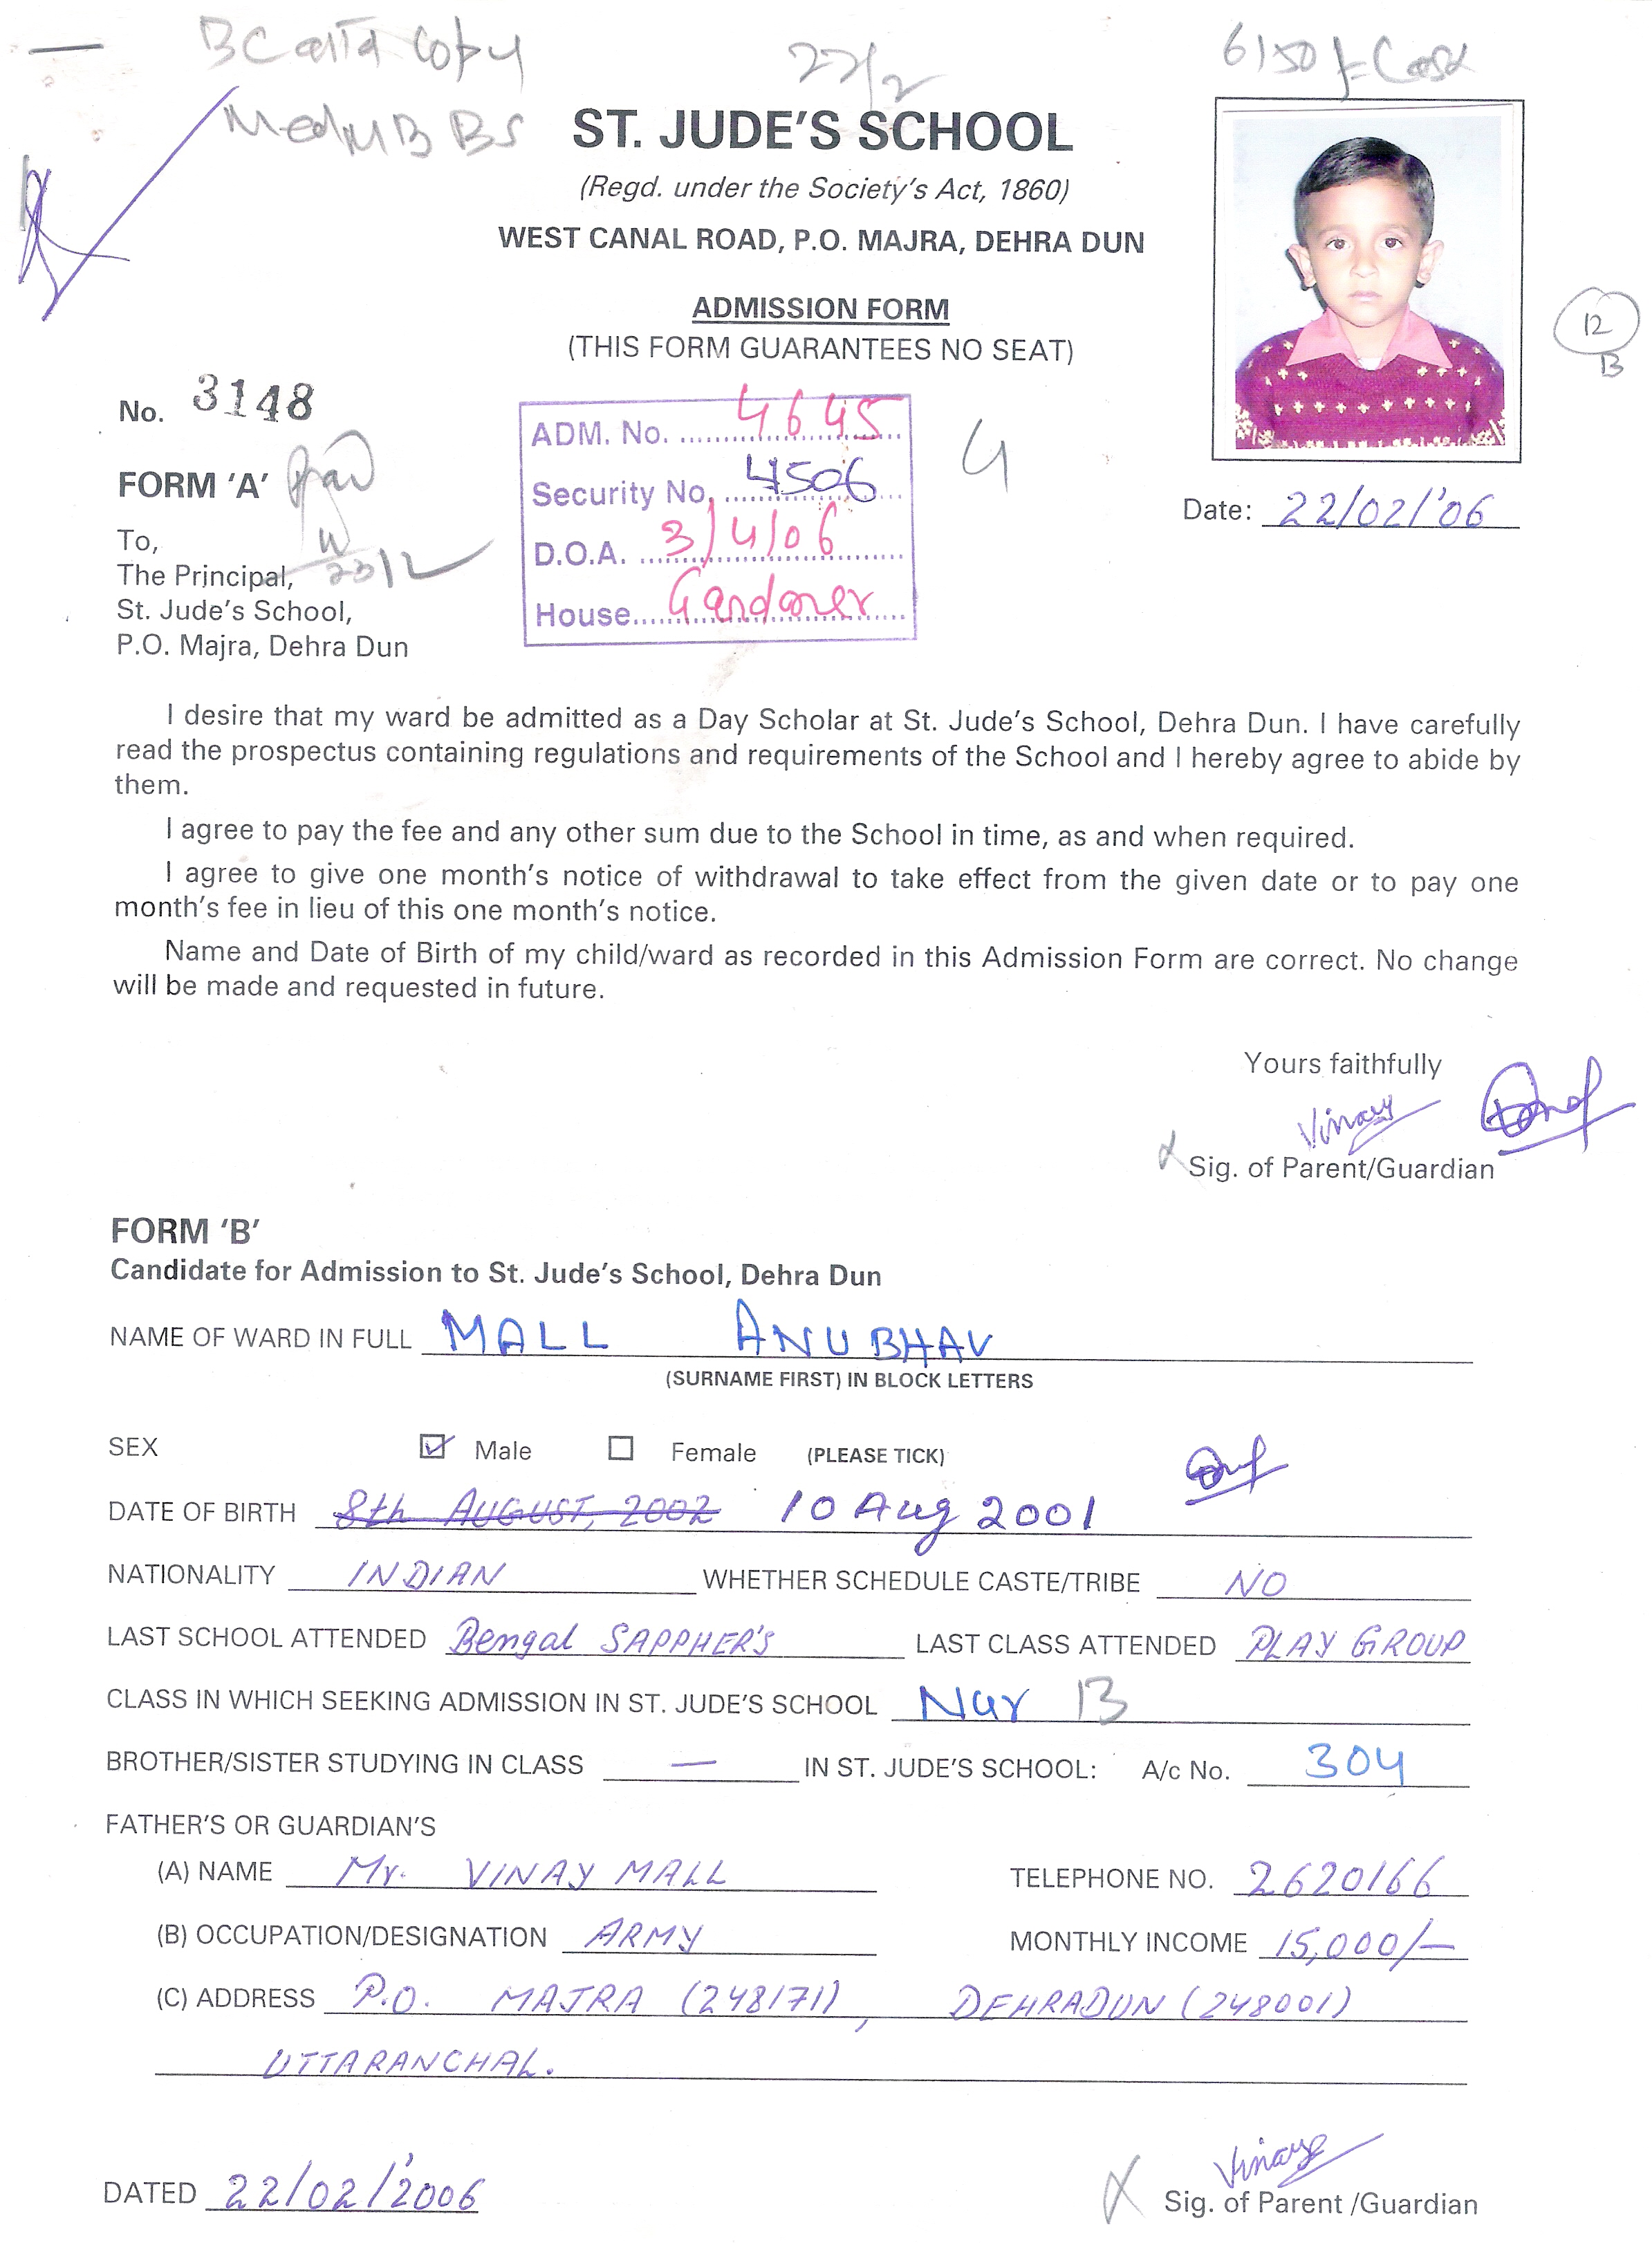 BC copy
22/2
6150/- Cash
Med MBBS
ST. JUDE'S SCHOOL
(Regd. under the Society's Act, 1860)
WEST CANAL ROAD, P.O. MAJRA, DEHRA DUN
ADMISSION FORM
(THIS FORM GUARANTEES NO SEAT)
12
B
No. 3148
ADM. No. 4645
Security No. 4506
D.O.A. 3/4/06
House Gardaner
FORM 'A'
Date: 22/02/'06
To,
23/2
The Principal,
St. Jude's School,
P.O. Majra, Dehra Dun
I desire that my ward be admitted as a Day Scholar at St. Jude's School, Dehra Dun. I have carefully
read the prospectus containing regulations and requirements of the School and I hereby agree to abide by
them.
I agree to pay the fee and any other sum due to the School in time, as and when required.
I agree to give one month's notice of withdrawal to take effect from the given date or to pay one
month's fee in lieu of this one month's notice.
Name and Date of Birth of my child/ward as recorded in this Admission Form are correct. No change
will be made and requested in future.
Yours faithfully
Vinay
Sig. of Parent/Guardian
FORM 'B'
Candidate for Admission to St. Jude's School, Dehra Dun
NAME OF WARD IN FULL MALL ANUBHAV
(SURNAME FIRST) IN BLOCK LETTERS
SEX Male Female (PLEASE TICK)
DATE OF BIRTH 8th AUGUST, 2002 10 Aug 2001
NATIONALITY INDIAN WHETHER SCHEDULE CASTE/TRIBE NO
LAST SCHOOL ATTENDED Bengal SAPPHER'S LAST CLASS ATTENDED PLAY GROUP
CLASS IN WHICH SEEKING ADMISSION IN ST. JUDE'S SCHOOL Nur B
BROTHER/SISTER STUDYING IN CLASS — IN ST. JUDE'S SCHOOL: A/c No. 304
FATHER'S OR GUARDIAN'S
(A) NAME Mr. VINAY MALL TELEPHONE NO. 2620166
(B) OCCUPATION/DESIGNATION ARMY MONTHLY INCOME 15,000/-
(C) ADDRESS P.O. MAJRA (248171), DEHRADUN (248001)
UTTARANCHAL.
DATED 22/02/'2006
Vinay
Sig. of Parent /Guardian